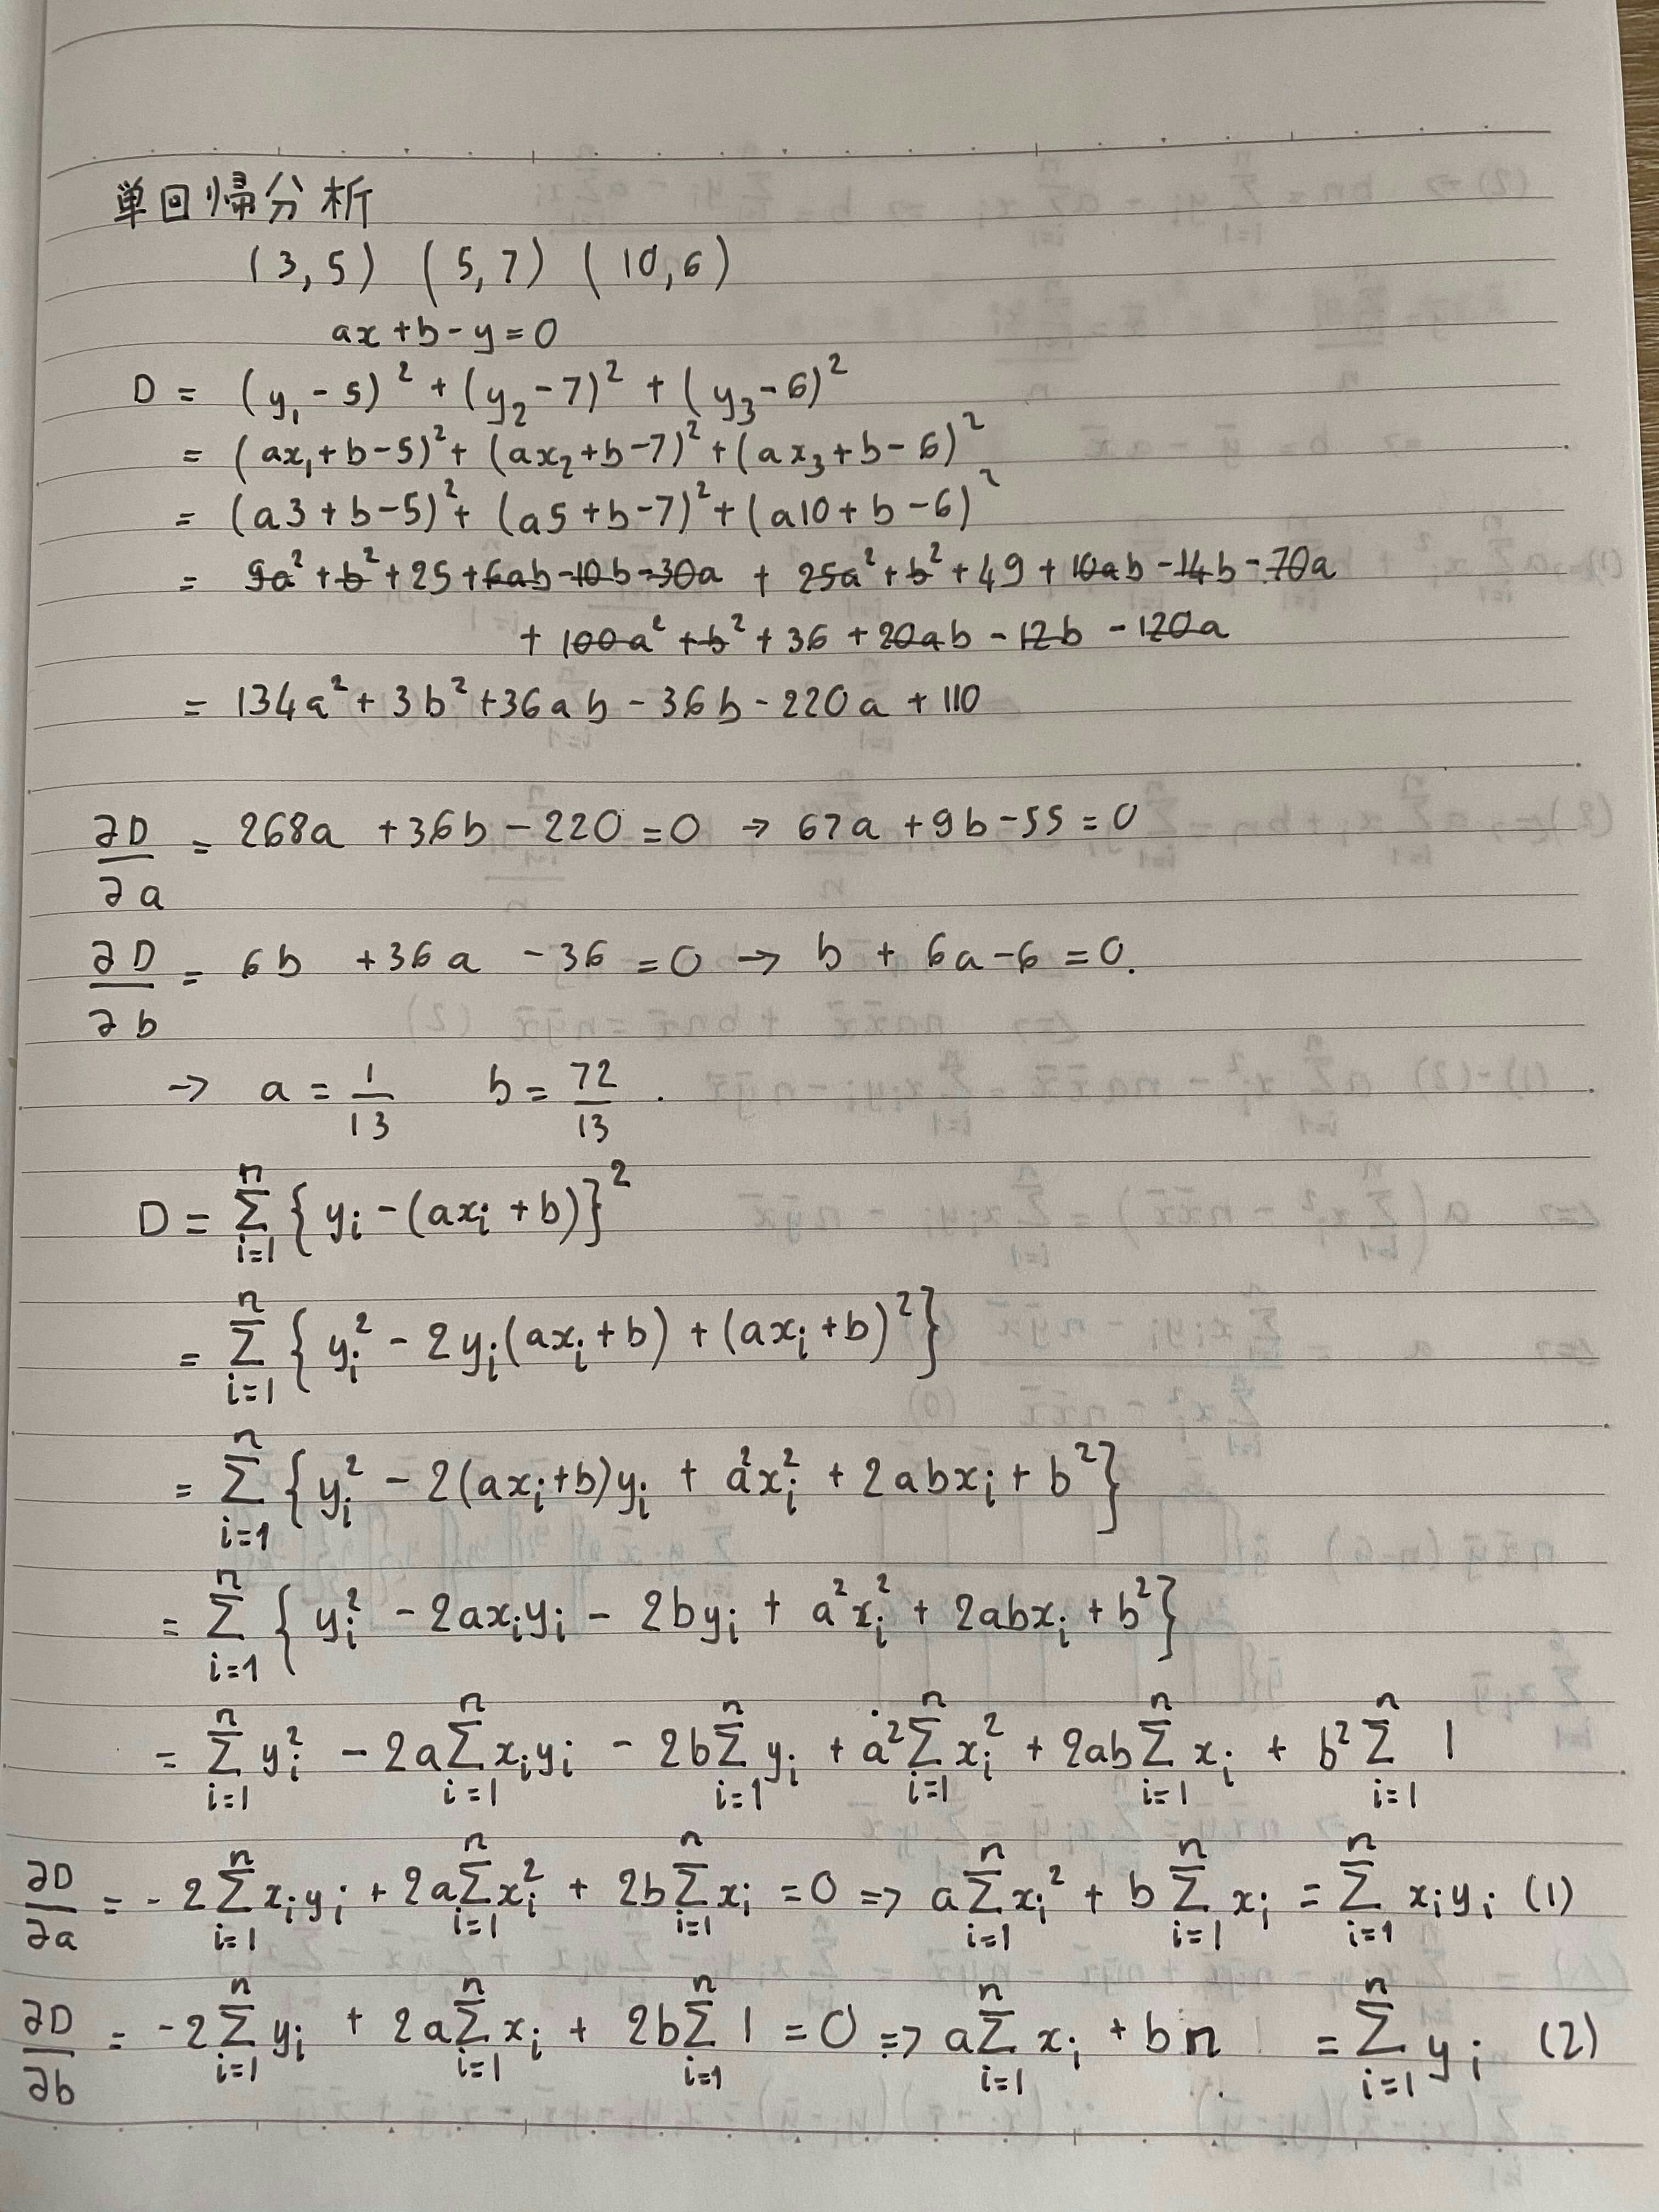 単回帰分析
(3,5) (5,7) (10,6)
ax+b-y=0
D = (y₁-5)² + (y₂-7)² + (y₃-6)²
= (ax₁+b-5)² + (ax₂+b-7)² + (ax₃+b-6)²
= (a3+b-5)² + (a5+b-7)² + (a10+b-6)²
= 9a²+b²+25+6ab-10b-30a + 25a²+b²+49+10ab-14b-70a
+ 100a²+b²+36+20ab-12b-120a
= 134a²+3b²+36ab-36b-220a+110
∂D/∂a = 268a+36b-220=0 → 67a+9b-55=0
∂D/∂b = 6b+36a-36=0 → b+6a-6=0.
→ a = 1/13 b = 72/13.
D = Σ_{i=1}^{n} {yᵢ-(axᵢ+b)}²
= Σ_{i=1}^{n} {yᵢ²-2yᵢ(axᵢ+b)+(axᵢ+b)²}
= Σ_{i=1}^{n} {yᵢ²-2(axᵢ+b)yᵢ+a²xᵢ²+2abxᵢ+b²}
= Σ_{i=1}^{n} {yᵢ²-2axᵢyᵢ-2byᵢ+a²xᵢ²+2abxᵢ+b²}
= Σ_{i=1}^{n} yᵢ² - 2aΣ_{i=1}^{n} xᵢyᵢ - 2bΣ_{i=1}^{n} yᵢ + a²Σ_{i=1}^{n} xᵢ² + 2abΣ_{i=1}^{n} xᵢ + b²Σ_{i=1}^{n} 1
∂D/∂a = -2Σ_{i=1}^{n} xᵢyᵢ + 2aΣ_{i=1}^{n} xᵢ² + 2bΣ_{i=1}^{n} xᵢ = 0 => aΣ_{i=1}^{n} xᵢ² + bΣ_{i=1}^{n} xᵢ = Σ_{i=1}^{n} xᵢyᵢ (1)
∂D/∂b = -2Σ_{i=1}^{n} yᵢ + 2aΣ_{i=1}^{n} xᵢ + 2bΣ_{i=1}^{n} 1 = 0 => aΣ_{i=1}^{n} xᵢ + bn = Σ_{i=1}^{n} yᵢ (2)